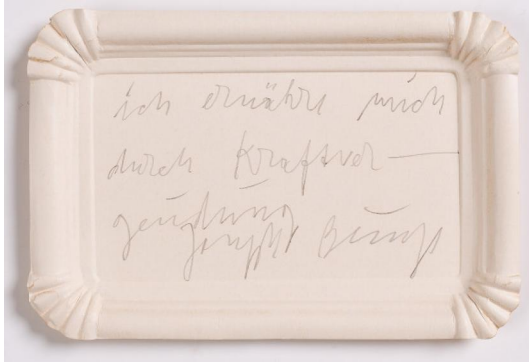 ich ernähre mich
durch Kraftver—
geudung
Joseph Beuys